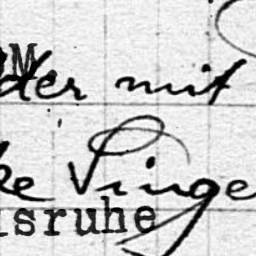 der mit
ke Singe
lsruhe